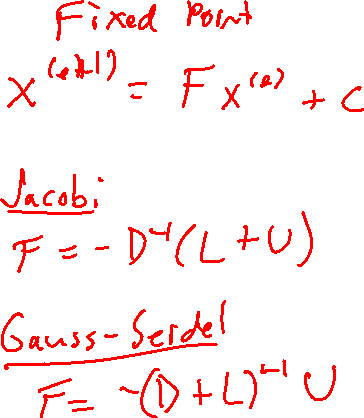 Fixed Point
x^(k+1) = F x^(k) + c
Jacobi
F = - D^-1 (L + U)
Gauss-Seidel
F = -(D + L)^-1 U